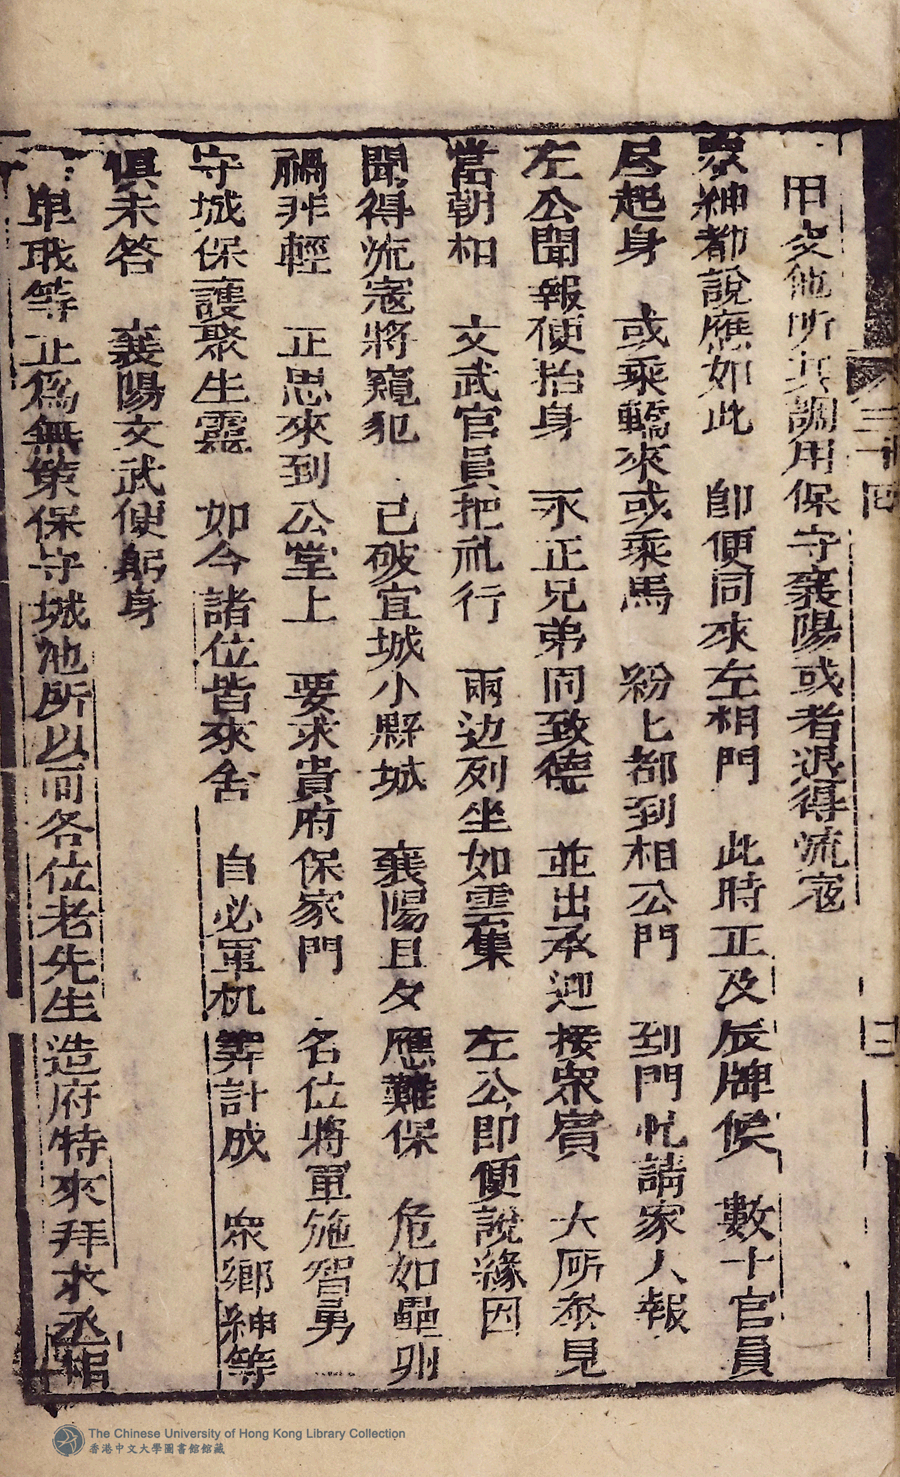 三十四
二
用交他所兵調用保守襄陽或者退得流寇
眾紳都說應如此 卽便同來左相門 此時正及辰牌候 數十官員
尽起身 或乘轎來或乘馬 紛匕都到相公門 到門忙請家人報
左公聞報便抬身 永正兄弟同致德 並出承迎接眾賓 大所叅見
當朝相 文武官員把礼行 兩边列坐如雲集 左公即便說緣因
聞得流寇將窺犯 己破宜城小縣城 襄陽旦夕應難保 危如壘卵
禍非輕 正思來到公堂上 要求貴府保家門 名位將軍施智勇
守城保護聚生靈 如今諸位皆來舍 自必軍机筭計成 眾鄉紳等
俱未答 襄陽文武便躬身
卑職等正爲無策保守城池所以同各位老先生造府特來拜求丞相
The Chinese University of Hong Kong Library Collection
香港中文大學圖書館館藏